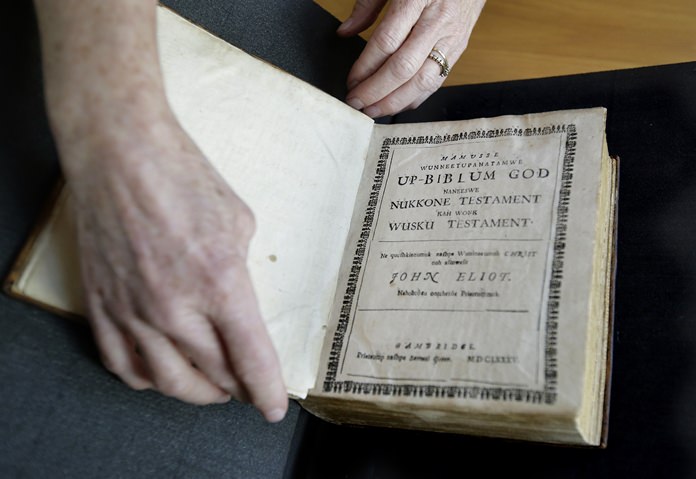 MAMUSSE
WUNNEETUPANATAMWE
UP-BIBLUM GOD
NANEESWE
NUKKONE TESTAMENT
KAH WONK
WUSKU TESTAMENT.
Ne quoshkinnumuk nashpe Wuttinneumoh CHRIST
noh asoowesit
JOHN ELIOT.
Nahohtôeu ontchetôe Printeuoomuk.
CAMBRIDGE.
Printeuoop nashpe Samuel Green. MDCLXXXV.